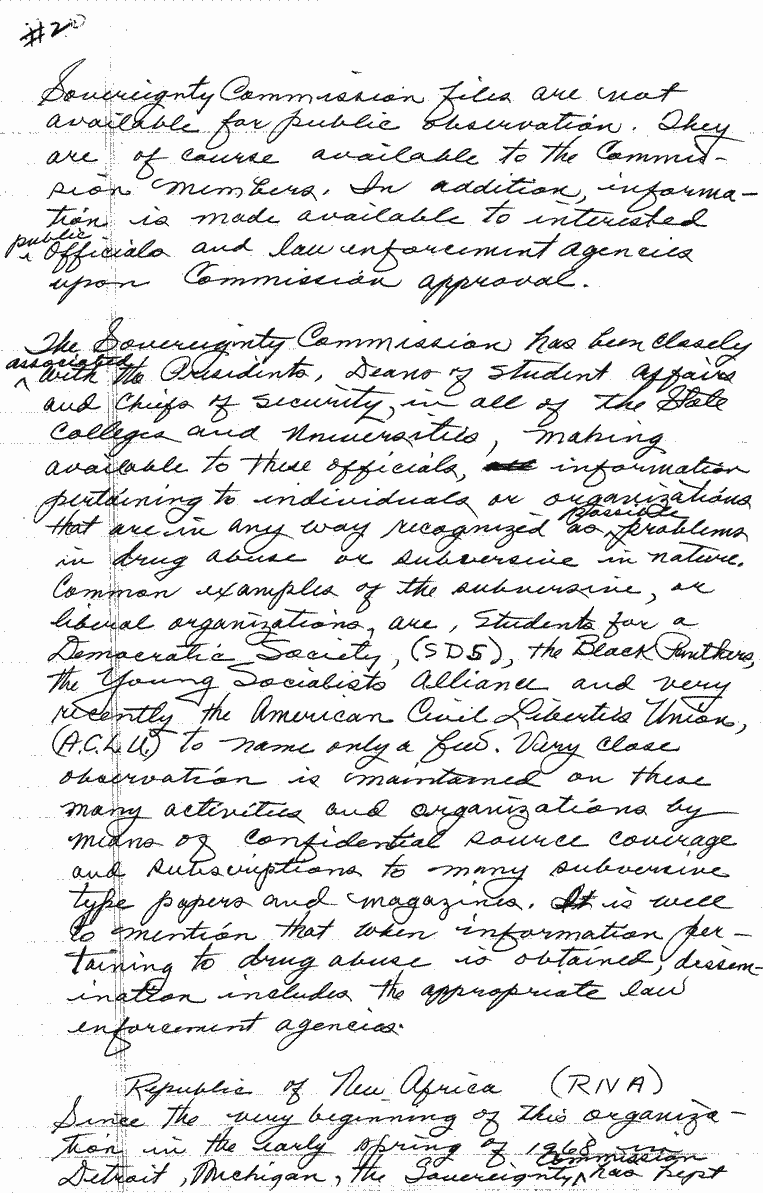 #2
Sovereignty Commission files are not
available for public observation. They
are of course available to the Commis-
sion members. In addition, informa-
tion is made available to interested
public
Officials and law enforcement agencies
upon Commission approval.
The Sovereignty Commission has been closely
associated
with the Presidents, Deans of Student affairs
and Chiefs of Security, in all of the State
Colleges and Universities, making
available to these officials, information
pertaining to individuals or organizations
possible
that are in any way recognized as problems
in drug abuse or subversive in nature.
Common examples of the subversive, or
liberal organizations, are, Students for a
Democratic Society, (SDS), the Black Panthers,
the Young Socialists Alliance and very
recently the American Civil Liberties Union,
(A.C.L.U.) to name only a few. Very close
observation is maintained on these
many activities and organizations by
means of confidential source coverage
and subscriptions to many subversive
type papers and magazines. It is well
to mention that when information per-
taining to drug abuse is obtained, dissem-
ination includes the appropriate law
enforcement agencies.
Republic of New Africa (RNA)
Since the very beginning of this organiza-
tion in the early spring of 1968 in
Commission
Detroit, Michigan, the Sovereignty has kept